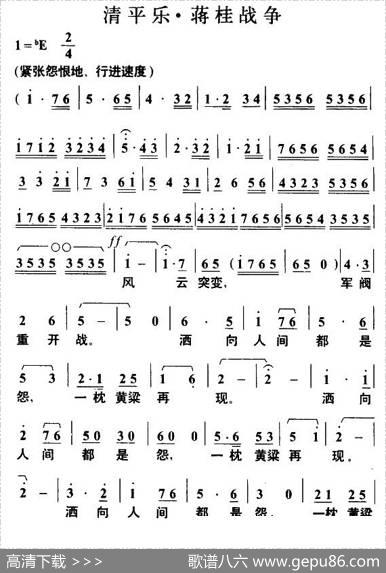 清平乐·蒋桂战争
1=♭E 2/4
(紧张怨恨地、行进速度)
(i·76 | 5·65 | 4·32 | 1·234 | 5356 5356 |
i712 3234 | 5·43 | 2·32 | 1·21 | 7656 5654 |
3 32i | 7 36i | 5 431 | 5 256 | 4323 5356 |
i765 4323 | 2176 5645 | 4321 7656 | i356 5356 |
3535 3535 | ff i - | i·7 | 65 (i765 | 65 0) | 4·3 |
风 云突变, 军阀
2 6 | 5 - | 5 0 | 6·5 | i 76 | 5·5 |
重开战。 洒向人间都是
5 3 | 2·1 25 | 1 6 | 2 - | 2 - | i·i |
怨, 一枕黄粱再现。 洒向
2 76 | 50 30 | 60 0 | 5·6 53 | 5 i | 2 - |
人间都是怨, 一枕黄粱再现。
2 - | 3·2 | i 2 | 6·5 | 3 0 | 21 25 |
洒向人间都是怨, 一枕黄粱
高清下载 >>>
歌谱八六 www.gepu86.com